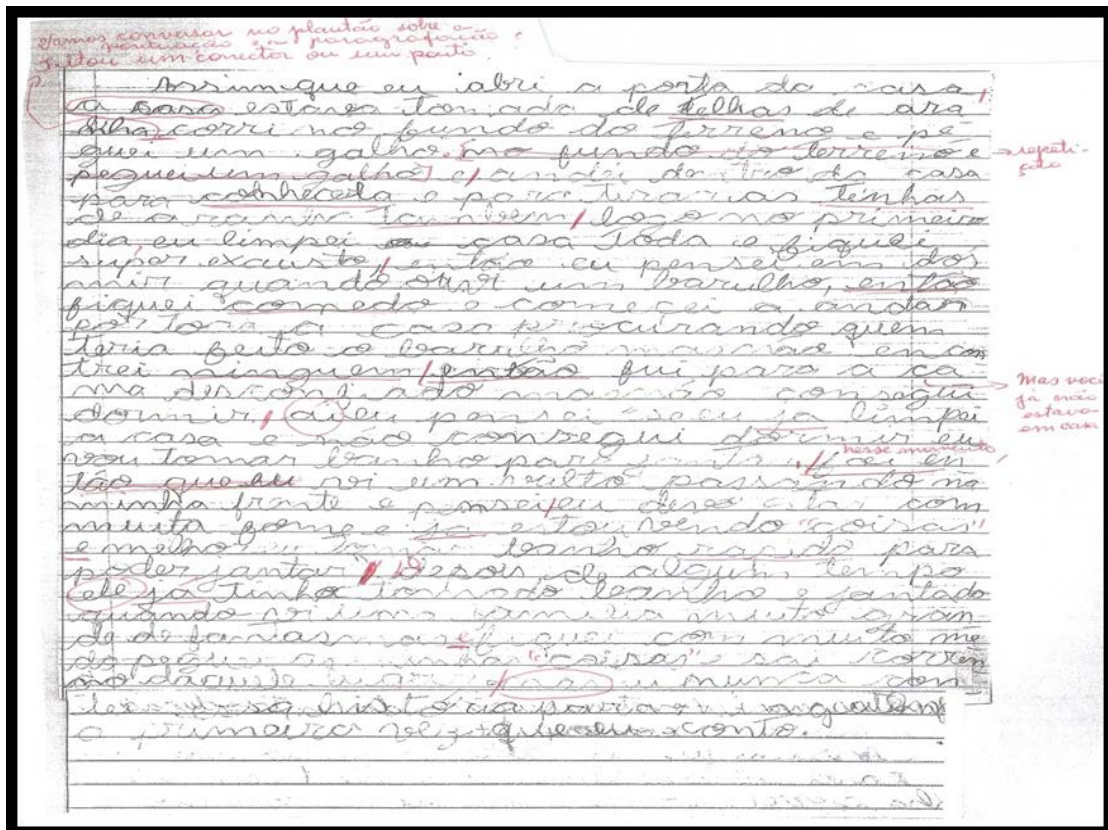 Vamos conversar no plantão sobre a
pontuação e a paragrafação?
Faltou um conector ou um ponto.
Assim que eu abri a porta da casa,
a casa estava tomada de telhas de ara
corri no fundo do terreno e pe
guei um galho no fundo do terreno e
peguei um galho e andei dentro da casa
→ repeti-
ção
para conheçela e para tirar as tenhas
de aranha tambem, logo no primeiro
dia, eu limpei a casa toda e fiquei
super exausto, então eu pensei em dor
mir quando ouvi um barulho, então
fiquei comedo e começei a andar
por toda a casa procurando quem
teria feito o barulho mas não encon
trei ninguem, então fui para a ca
→ Mas você
já não
estava
em casa
ma desconfiado mas não consegui
dormir, ai eu pensei se eu ja limpei
a casa e não consegui dormir eu
vou tomar banho para foi en
nesse momento,
tão que eu vi um vulto passando na
minha frente e pensei eu devo com
muita fome e ja estou vendo "coisas"
e melhor eu tomar banho rapido para
poder jantar Depois de algum tempo
ele já tinha tomado banho e jantado
quando vi uma familia muito gran
de de fantasmas e fiquei com muito me
do peguei minhas "coisas" e sai corren
no daquele lugar e mas eu nunca con
historia para
a primeira vez que eu conto.